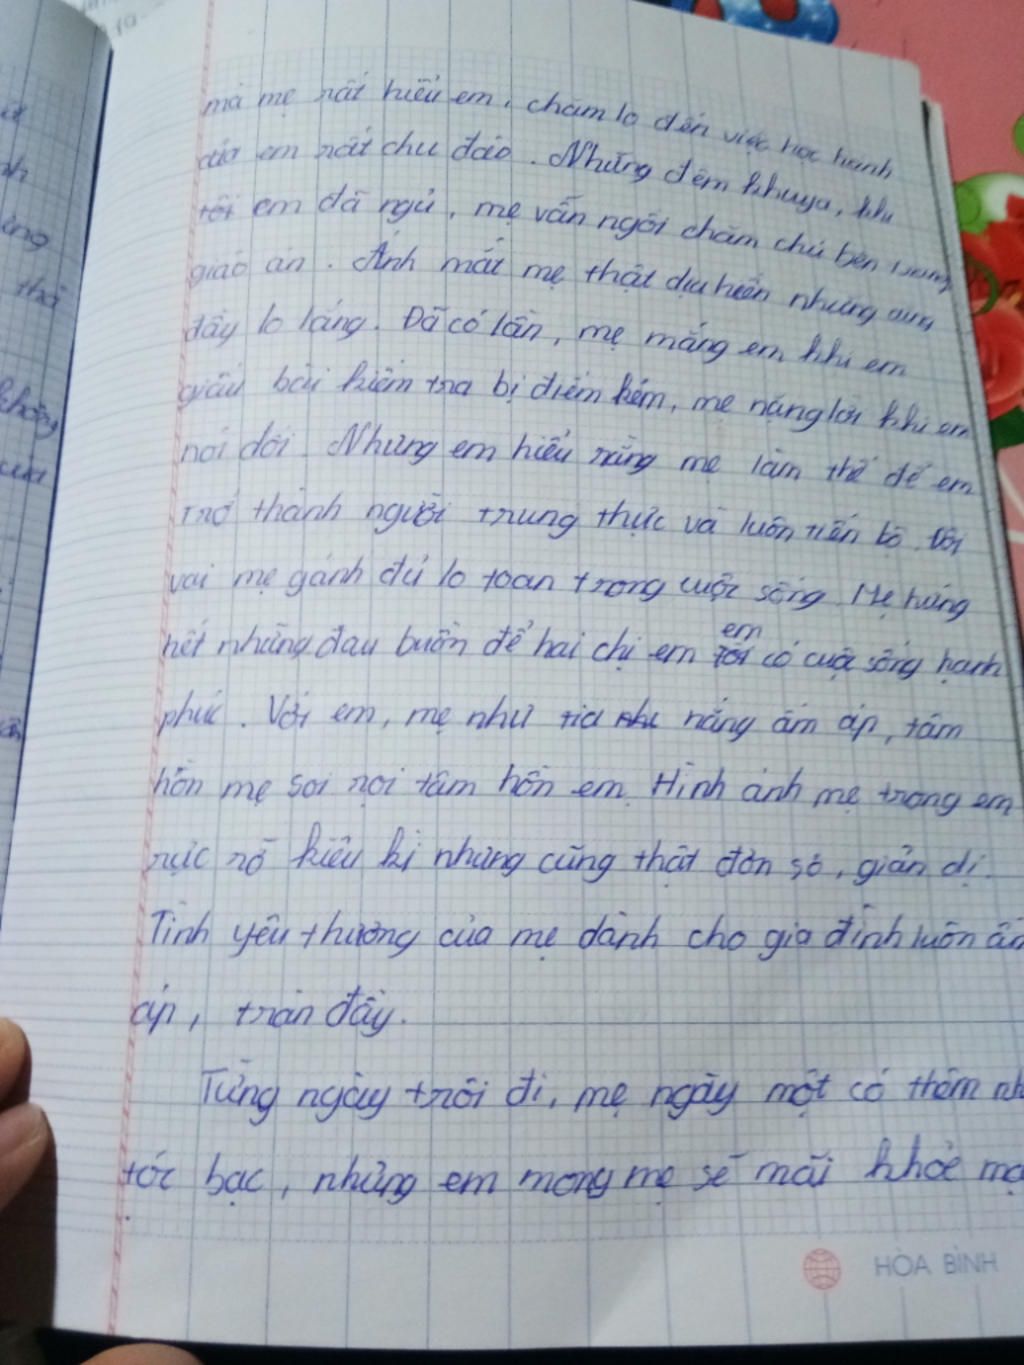 mà mẹ rất hiểu em, chăm lo đến việc học hành
của em rất chu đáo. Những đêm khuya, khi
tôi em đã ngủ, mẹ vẫn ngồi chăm chú bên trang
giáo án. Ánh mắt mẹ thật dịu hiền nhưng cũng
đầy lo lắng. Đã có lần, mẹ mắng em khi em
giấu bài kiểm tra bị điểm kém, mẹ nặng lời khi em
nói dối. Nhưng em hiểu rằng mẹ làm thế để em
trở thành người trung thực và luôn tiến bộ. Đôi
vai mẹ gánh đủ lo toan trong cuộc sống. Mẹ hứng
hết những đau buồn để hai chị em tôi em có cuộc sống hạnh
phúc. Với em, mẹ như tia như nắng ấm áp, tâm
hồn mẹ soi rọi tâm hồn em. Hình ảnh mẹ trong em
rực rỡ kiêu kì nhưng cũng thật đơn sơ, giản dị.
Tình yêu thương của mẹ dành cho gia đình luôn ấm
áp, tràn đầy.
Từng ngày trôi đi, mẹ ngày một có thêm
tóc bạc, nhưng em mong mẹ sẽ mãi khoẻ
HÒA BÌNH